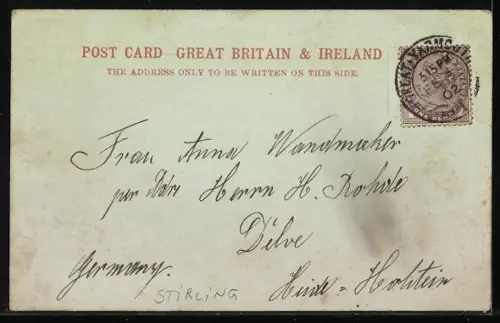 POST CARD GREAT BRITAIN & IRELAND
THE ADDRESS ONLY TO BE WRITTEN ON THIS SIDE.
GREAT YARMOUTH
5.15 PM
02
Frau Anna Wandmaker
per Adr. Herrn H. Rohde
Delve
Germany.
Heide = Holstein
STIRLING